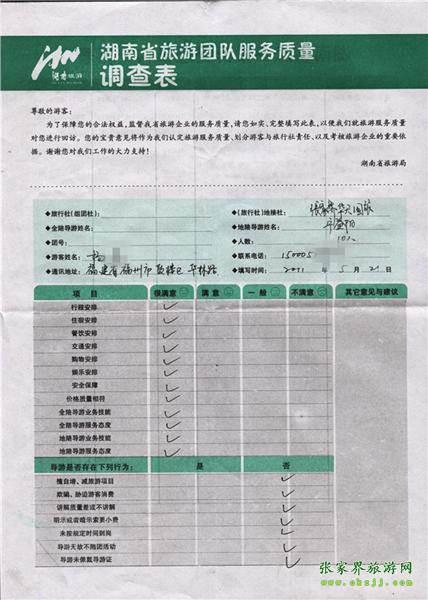 湖南旅游
湖南省旅游团队服务质量
调查表
尊敬的游客:
为了保障您的合法权益,监督我省旅游企业的服务质量,请您如实、完整填写此表,以便我们就旅游服务质量
对您进行回访。您的宝贵意见将作为我们认定旅游服务质量、划分游客与旅行社责任、以及考核旅游企业的重要依
据。谢谢您对我们工作的大力支持!
湖南省旅游局
◆旅行社(组团社): ◆(旅行社)地接社: 张家界华天国旅
◆全陪导游姓名: ◆地陪导游姓名:
◆团号: ◆人数: 10人
◆游客姓名: 杨 ◆联系电话: 150005
◆通讯地址: 福建省福州市鼓楼区华林路 ◆填写时间: 2011 年 5 月 21 日
项 目 很满意 满 意 一 般 不满意 其它意见与建议
行程安排 ✓
住宿安排 ✓
餐饮安排 ✓
交通安排 ✓
购物安排 ✓
娱乐安排 ✓
安全保障 ✓
价格质量相符 ✓
全陪导游业务技能 ✓
全陪导游服务态度 ✓
地陪导游业务技能 ✓
地陪导游服务态度 ✓
导游是否存在下列行为: 是 否
擅自增、减旅游项目 ✓
欺骗、胁迫游客消费 ✓
讲解质量差或不讲解 ✓
明示或者暗示索要小费 ✓
未按规定时间到岗 ✓
导游无故不随团活动 ✓
导游未佩戴导游证 ✓
张家界旅游网
www.okzjj.com